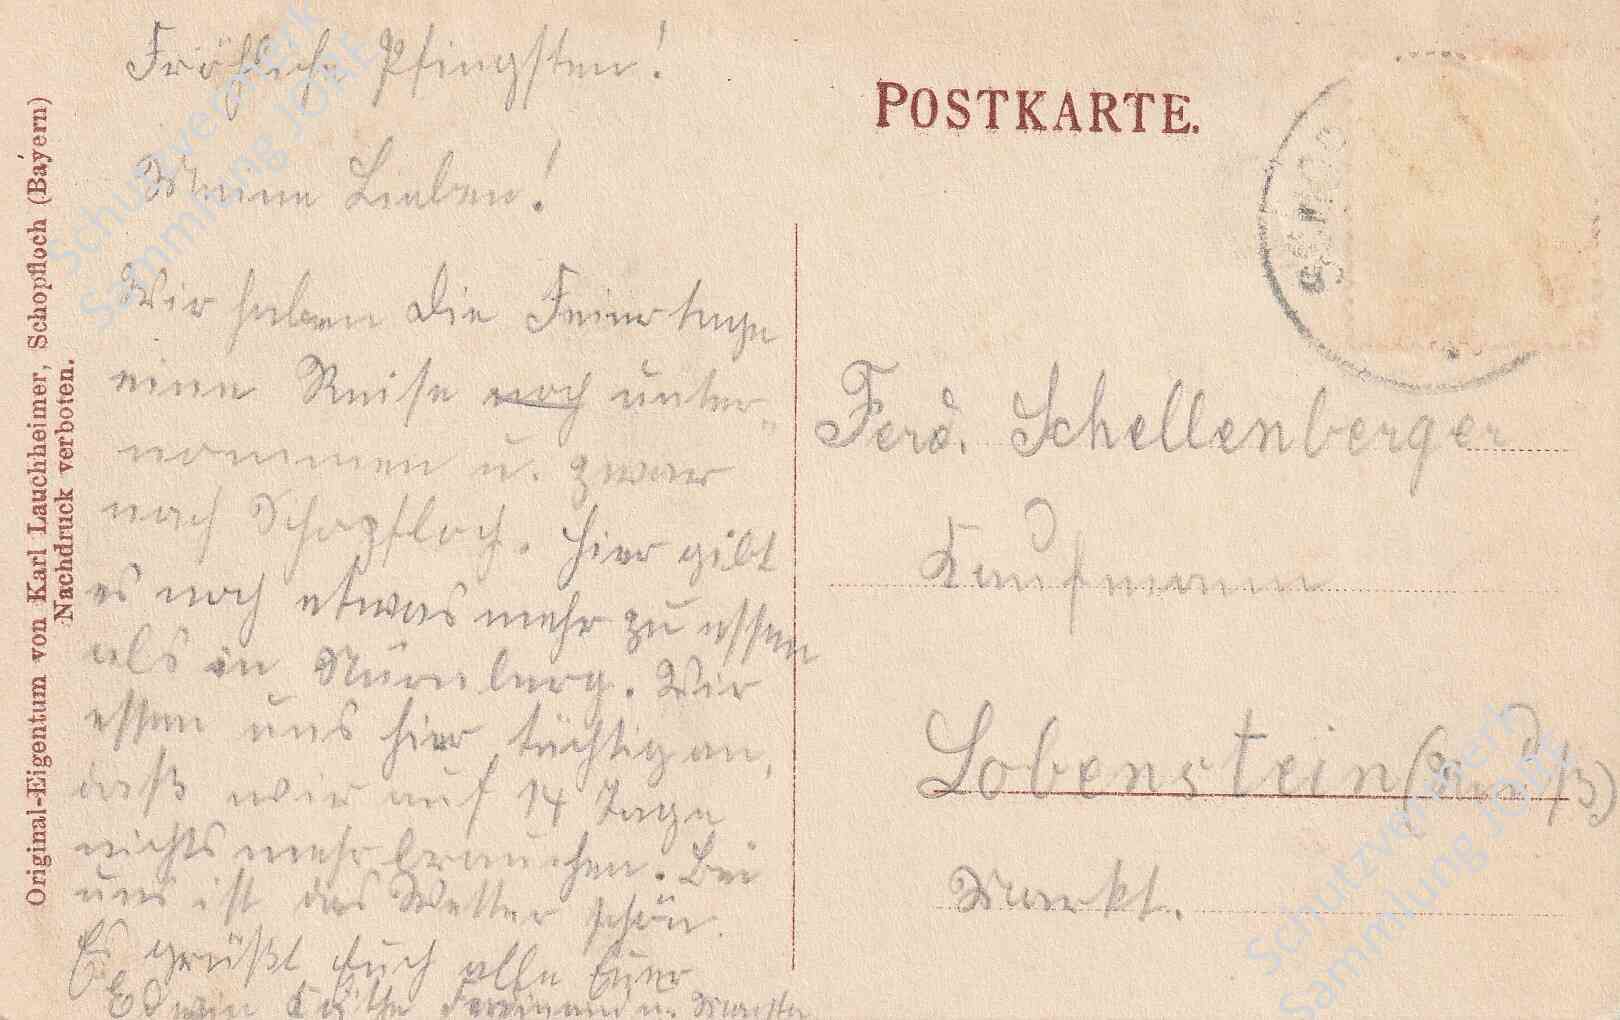 Fröhliche Pfingsten!
Meine Lieben!
Wir haben die Feiertage
eine Reise noch unter-
nommen u. zwar
nach Schopfloch. Hier gibt
es noch etwas mehr zu essen
als in Nürnberg. Wir
essen uns hier tüchtig an,
daß wir auf 14 Tage
nichts mehr brauchen. Bei
uns ist das Wetter schön.
Es grüßt Euch alle Euer
Edwin Käthe Ferdinand u.
Original-Eigentum von Karl Lauchheimer, Schopfloch (Bayern)
Nachdruck verboten.
POSTKARTE.
Ferd. Schellenberger
Kaufmann
Lobenstein (Reuß)
Markt.
Schutzvermerk
Sammlung JOBE
Schutzvermerk
Sammlung JOBE